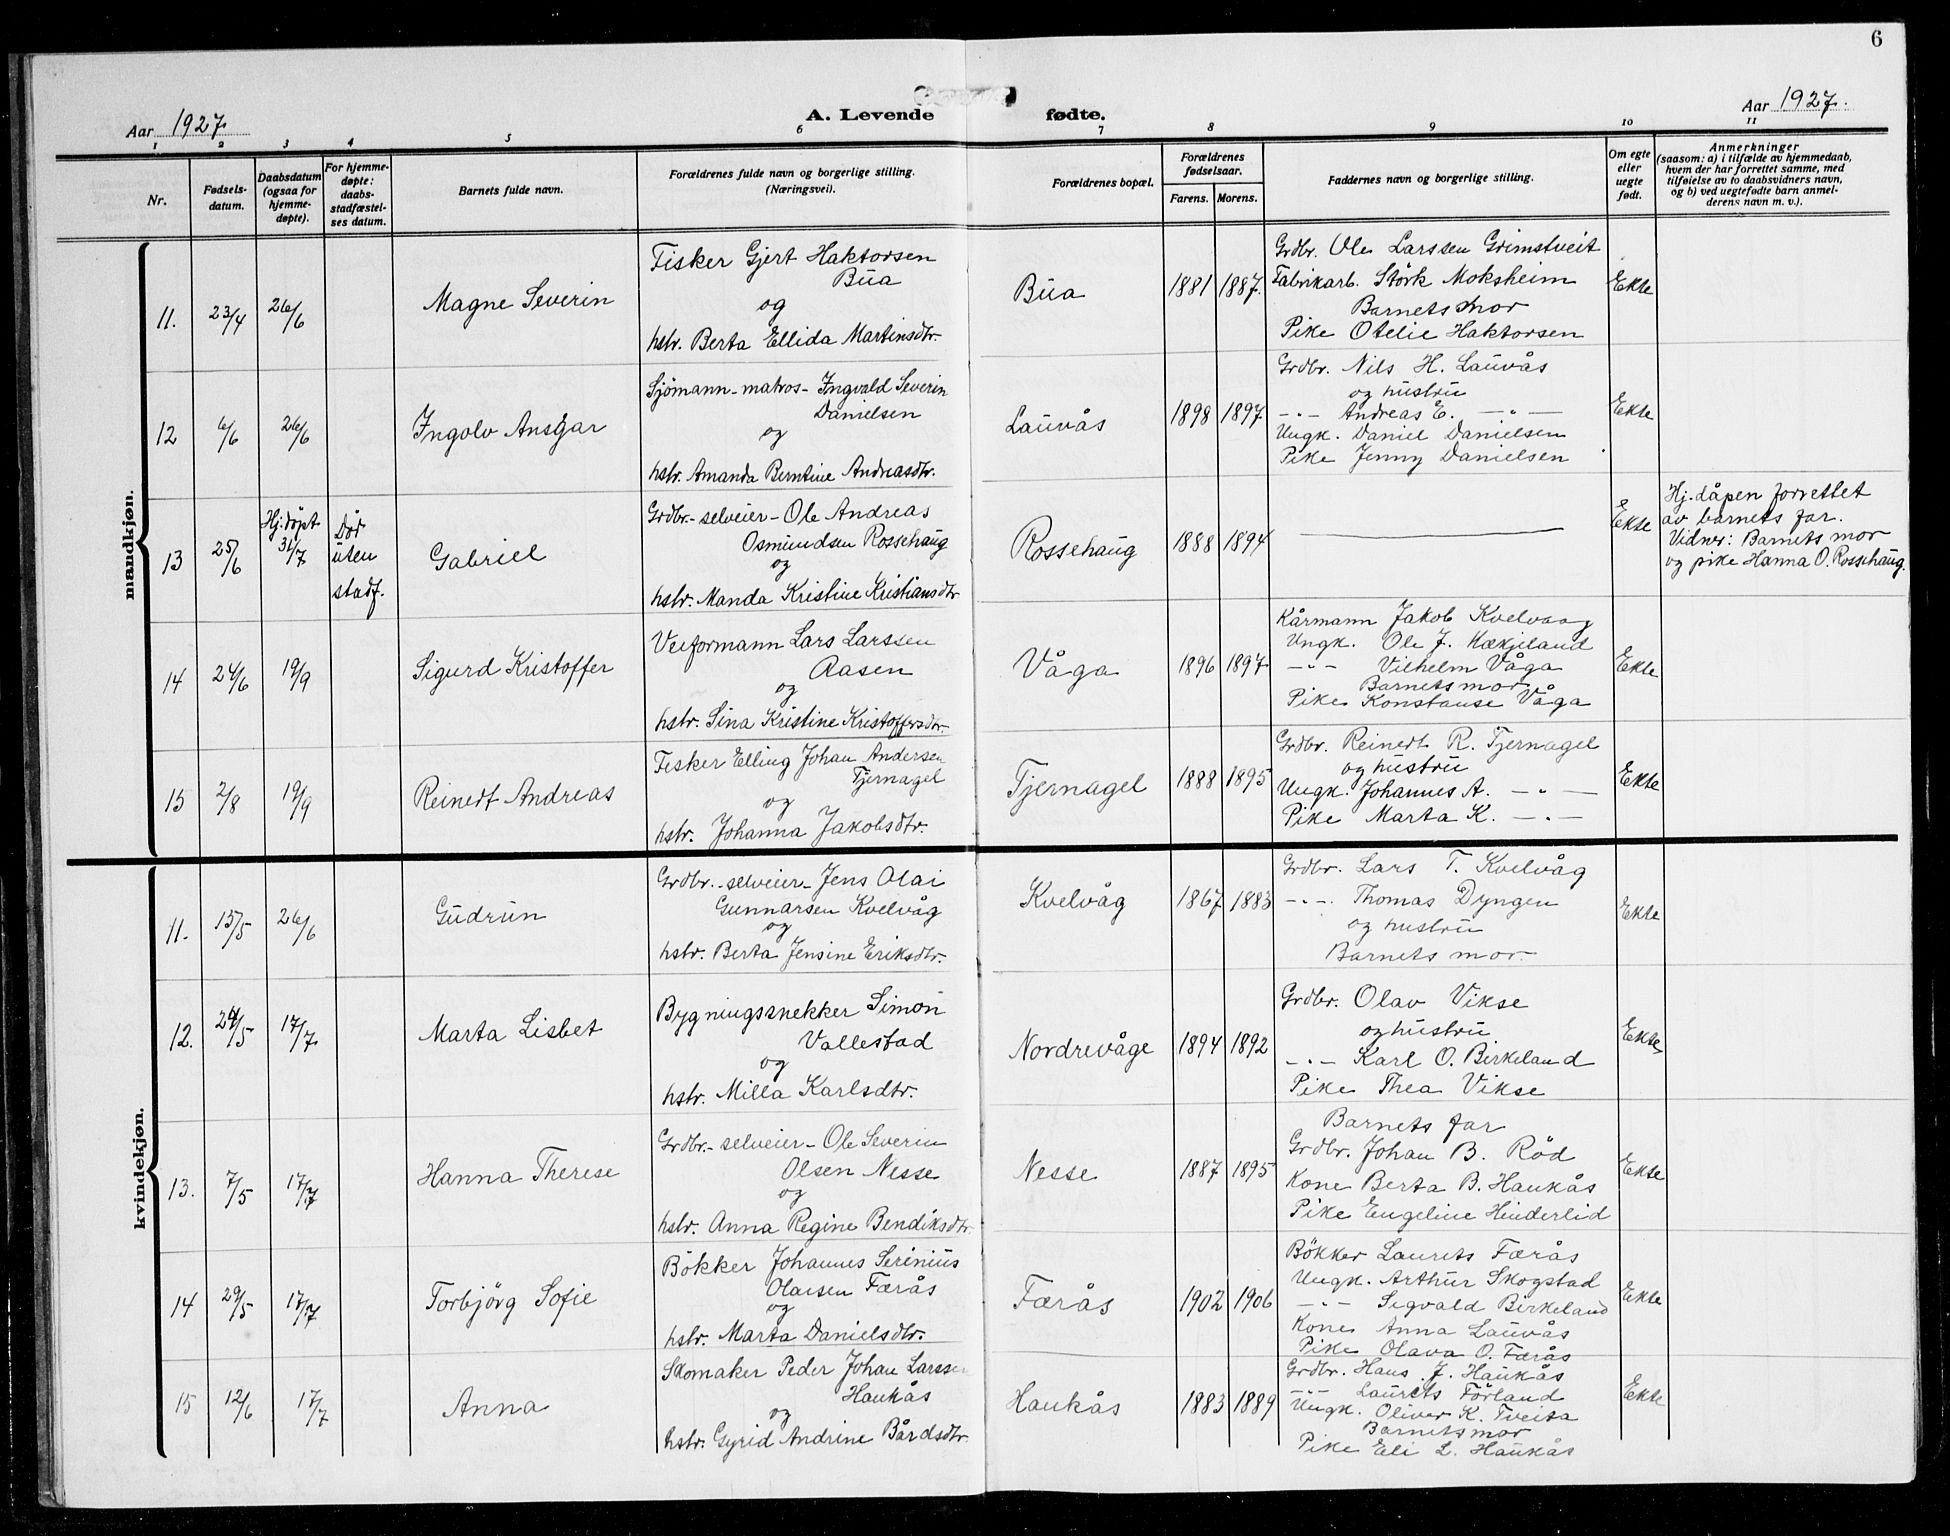 6
Aar 1927. A. Levende fødte. Aar 1927.
1 2 3 4 5 6 7 8 9 10 11
Nr.
Fødsels-
datum.
Daabsdatum
(ogsaa for
hjemme-
døpte).
For hjemme-
døpte:
daabs-
stadfæstel-
ses datum.
Barnets fulde navn.
Forældrenes fulde navn og borgerlige stilling.
(Næringsvei).
Forældrenes bopæl.
Forældrenes
fødselsaar.
Farens. Morens.
Faddernes navn og borgerlige stilling.
Om egte
eller
uegte
født.
Anmerkninger
(saasom: a) i tilfælde av hjemmedaab,
hvem der har forrettet samme, med
tilføielse av to daabsvidners navn,
og b) ved uegtefødte barn anmel-
derens navn m. v.).
mandkjøn.
11. 23/4 26/6 Magne Severin
Fisker Gjert Haktorsen
Bua
og
hstr. Berta Ellida Martinsdtr.
Bua 1881 1887.
Grdbr. Ole Larssen Grimstveit
Fabrikarb. Störk Moksheim
Barnets mor
Pike Otelie Haktorsen
Ekte
12 6/6 26/6 Ingolv Ansgar
Sjömann - matros - Ingvald Severin
Danielsen
og
hstr. Amanda Berntine Andreasdtr.
Lauvås 1898 1897
Grdbr. Nils H. Lauvås
og hustru
-"- Andreas E. -"-
Ungk. Daniel Danielsen
Pike Jenny Danielsen
Ekte
13 25/6 Hj.döpt
31/7
Död
uten
stadf.
Gabriel
Grdbr.- selveier - Ole Andreas
Osmundsen Rossehaug
og
hstr. Manda Kristine Kristiansdtr
Rossehaug 1888 1894
Ekte
Hj.dåpen forrettet
av barnets far.
Vidner: Barnets mor
og pike Hanna O. Rossehaug.
14 24/6 19/9 Sigurd Kristoffer
Veiformann Lars Larssen
Aasen
og
hstr. Sina Kristine Kristoffersdtr.
Våga 1896 1897
Kårmann Jakob Kvelvaag
Ungk. Ole J. Mækjeland
-"- Vilhelm Våga
Barnets mor
Pike Konstanse Våga
Ekte
15 2/8 19/9 Reinert Andreas
Fisker Elling Johan Andersen
Tjernagel
og
hstr. Johanna Jakobsdtr.
Tjernagel 1888 1895
Grdbr. Reinert R. Tjernagel
og hustru
Ungk. Johannes A. -"-
Pike Marta K. -"-
Ekte
kvindekjøn.
11. 15/5 26/6 Gudrun
Grdbr.- selveier - Jens Olai
Gunnarsen Kvelvåg
og
hstr. Berta Jensine Eriksdtr.
Kvelvåg 1867 1883
Grdbr. Lars T. Kvelvåg
-"- Thomas Dyngen
og hustru
Barnets mor
Ekte
12. 24/5 17/7 Marta Lisbet
Bygningssnekker Simon
Vallestad
og
hstr. Milla Karlsdtr.
Nordrevåge 1894 1892
Grdbr. Olav Vikse
og hustru
-"- Karl O. Birkeland
Pike Thea Vikse
Ekte
13. 7/5 17/7 Hanna Therese
Grdbr.- selveier - Ole Severin
Olsen Nesse
og
hstr. Anna Regine Bendiksdtr.
Nesse 1887 1895
Barnets far
Grdbr. Johan B. Röd
Kone Berta B. Haukås
Pike Engeline Hinderlid
Ekte
14 29/5 17/7 Torbjörg Sofie
Bökker Johannes Serinius
Olaisen Færås
og
hstr. Marta Danielsdtr.
Færås 1902 1906
Bökker Laurits Færås
Ungk. Arthur Skogstad
-"- Sigvald Birkeland
Kone Anna Lauvås
Pike Olava O. Færås
Ekte
15 12/6 17/7 Anna
Skomaker Peder Johan Larssen
Haukås
og
hstr. Gyrid Andrine Bårdsdtr.
Haukås 1883 1889
Grdbr. Hans J. Haukås
-"- Laurits Förland
Ungk. Oliver K. Tveita
Barnets mor
Pike Eli L. Haukås
Ekte